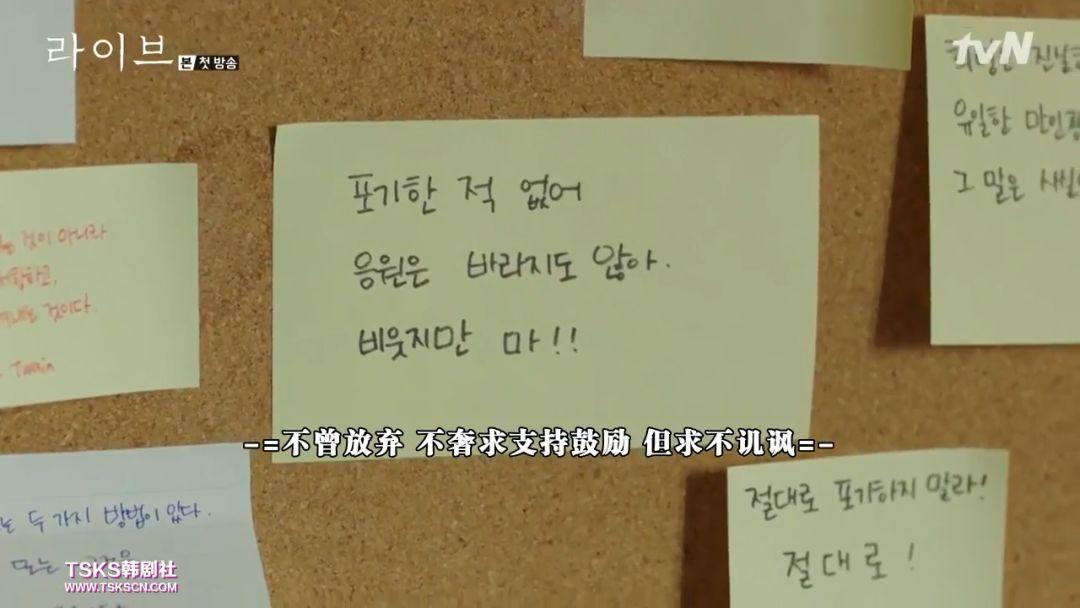 라이브
본 첫 방송
tvN
진실
유일한
그 말은
포기한 적 없어
응원은 바라지도 않아.
비웃지만 마!!
것이 아니라
것이다.
Twain
-=不曾放弃 不奢求支持鼓励 但求不讥讽=-
두 가지 방법이 있다.
모든
절대로 포기하지 말라!
절대로!
TSKS韩剧社
WWW.TSKSCN.COM